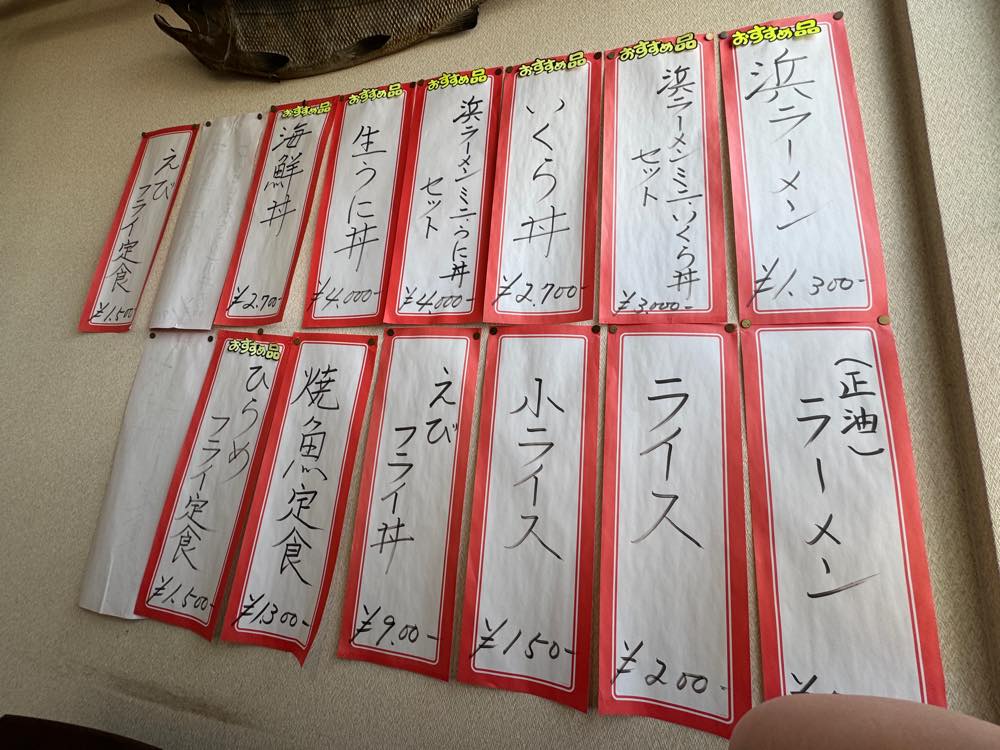 おすすめ品
浜ラーメン
¥1.300-
おすすめ品
浜ラーメンミニいくら丼
セット
¥3.000-
おすすめ品
いくら丼
¥2.700-
おすすめ品
浜ラーメンミニうに丼
セット
¥4.000-
おすすめ品
生うに丼
¥4.000-
おすすめ品
海鮮丼
¥2.700-
えび
フライ定食
¥1.500
(正油)
ラーメン
ライス
¥200-
小ライス
¥150-
えび
フライ丼
¥9.00-
焼魚定食
¥1.300-
おすすめ品
ひらめ
フライ定食
¥1.500-